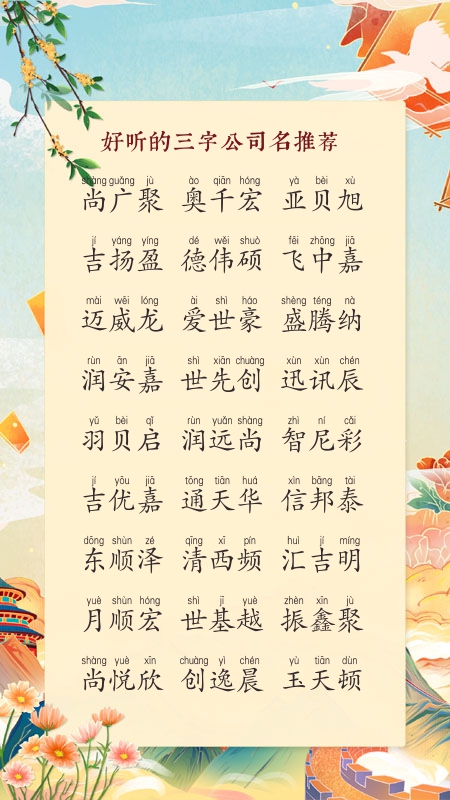 好听的三字公司名推荐
shàng guǎng jù ào qiān hóng yà bèi xù
尚广聚 奥千宏 亚贝旭
jí yáng yíng dé wěi shuò fēi zhōng jiā
吉扬盈 德伟硕 飞中嘉
mài wēi lóng ài shì háo shèng téng nà
迈威龙 爱世豪 盛腾纳
rùn ān jiā shì xiān chuàng xùn xùn chén
润安嘉 世先创 迅讯辰
yǔ bèi qǐ rùn yuǎn shàng zhì ní cǎi
羽贝启 润远尚 智尼彩
jí yōu jiā tōng tiān huá xìn bāng tài
吉优嘉 通天华 信邦泰
dōng shùn zé qīng xī pín huì jí míng
东顺泽 清西频 汇吉明
yuè shùn hóng shì jī yuè zhèn xīn jù
月顺宏 世基越 振鑫聚
shàng yuè xīn chuàng yì chén yù tiān dùn
尚悦欣 创逸晨 玉天顿